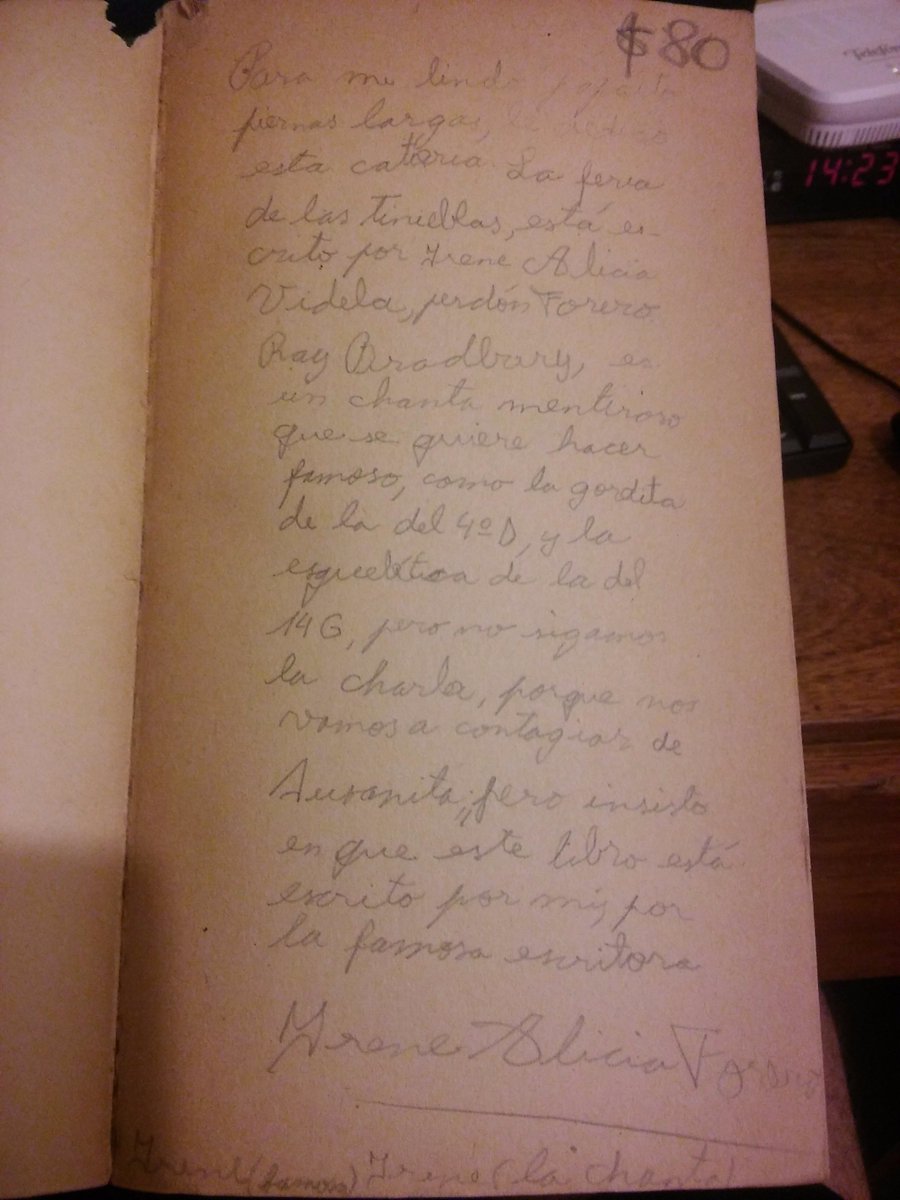 $80
Para mi lindo papaíto
piernas largas, le dedico
esta catería La feria
de las tinieblas, está es-
crito por Irene Alicia
Videla, perdón Forero.
Ray Bradbury, es
un chanta mentiroso
que se quiere hacer
famoso, como la gordita
de la del 4º D, y la
esquelética de la del
14 G, pero no sigamos
la charla, porque nos
vamos a contagiar de
Susanita, pero insisto
en que este libro está
escrito por mí, por
la famosa escritora
Irene Alicia Forero
Irene (famosa) Irene (la chanta)
14:23